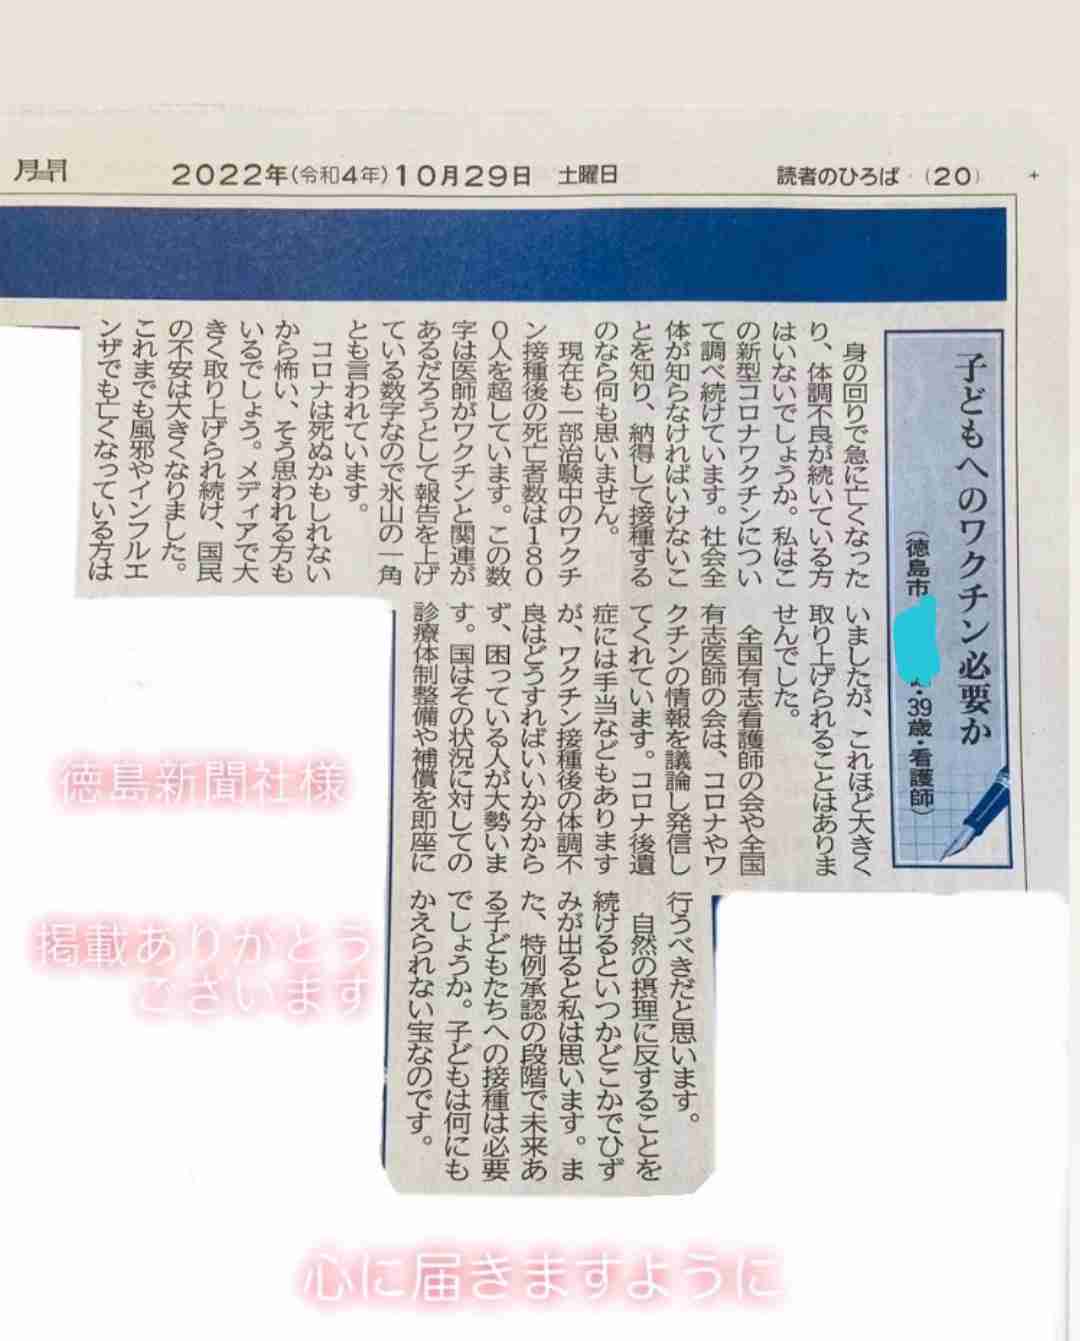 聞
2022年(令和4年)10月29日 土曜日
読者のひろば (20)
子どもへのワクチン必要か
(徳島市
・39歳・看護師)
身の回りで急に亡くなった
り、体調不良が続いている方
はいないでしょうか。私はこ
の新型コロナワクチンについ
て調べ続けています。社会全
体が知らなければいけないこ
とを知り、納得して接種する
のなら何も思いません。
現在も一部治験中のワクチ
ン接種後の死亡者数は180
0人を超しています。この数
字は医師がワクチンと関連が
あるだろうとして報告を上げ
ている数字なので氷山の一角
とも言われています。
コロナは死ぬかもしれない
から怖い、そう思われる方も
いるでしょう。メディアで大
きく取り上げられ続け、国民
の不安は大きくなりました。
これまでも風邪やインフルエ
ンザでも亡くなっている方は
いましたが、これほど大きく
取り上げられることはありま
せんでした。
全国有志看護師の会や全国
有志医師の会は、コロナやワ
クチンの情報を議論し発信し
てくれています。コロナ後遺
症には手当などもあります
が、ワクチン接種後の体調不
良はどうすればいいか分から
ず、困っている人が大勢いま
す。国はその状況に対しての
診療体制整備や補償を即座に
行うべきだと思います。
自然の摂理に反することを
続けるといつかどこかでひず
みが出ると私は思います。ま
た、特例承認の段階で未来あ
る子どもたちへの接種は必要
でしょうか。子どもは何にも
かえられない宝なのです。
徳島新聞社様
掲載ありがとう
ございます
心に届きますように